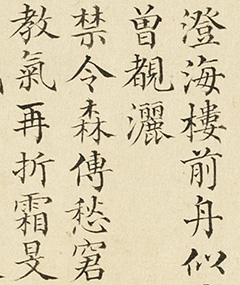 澄海樓前舟似
曾覩灑
禁令森傳愁窘
教氣再折霜旻